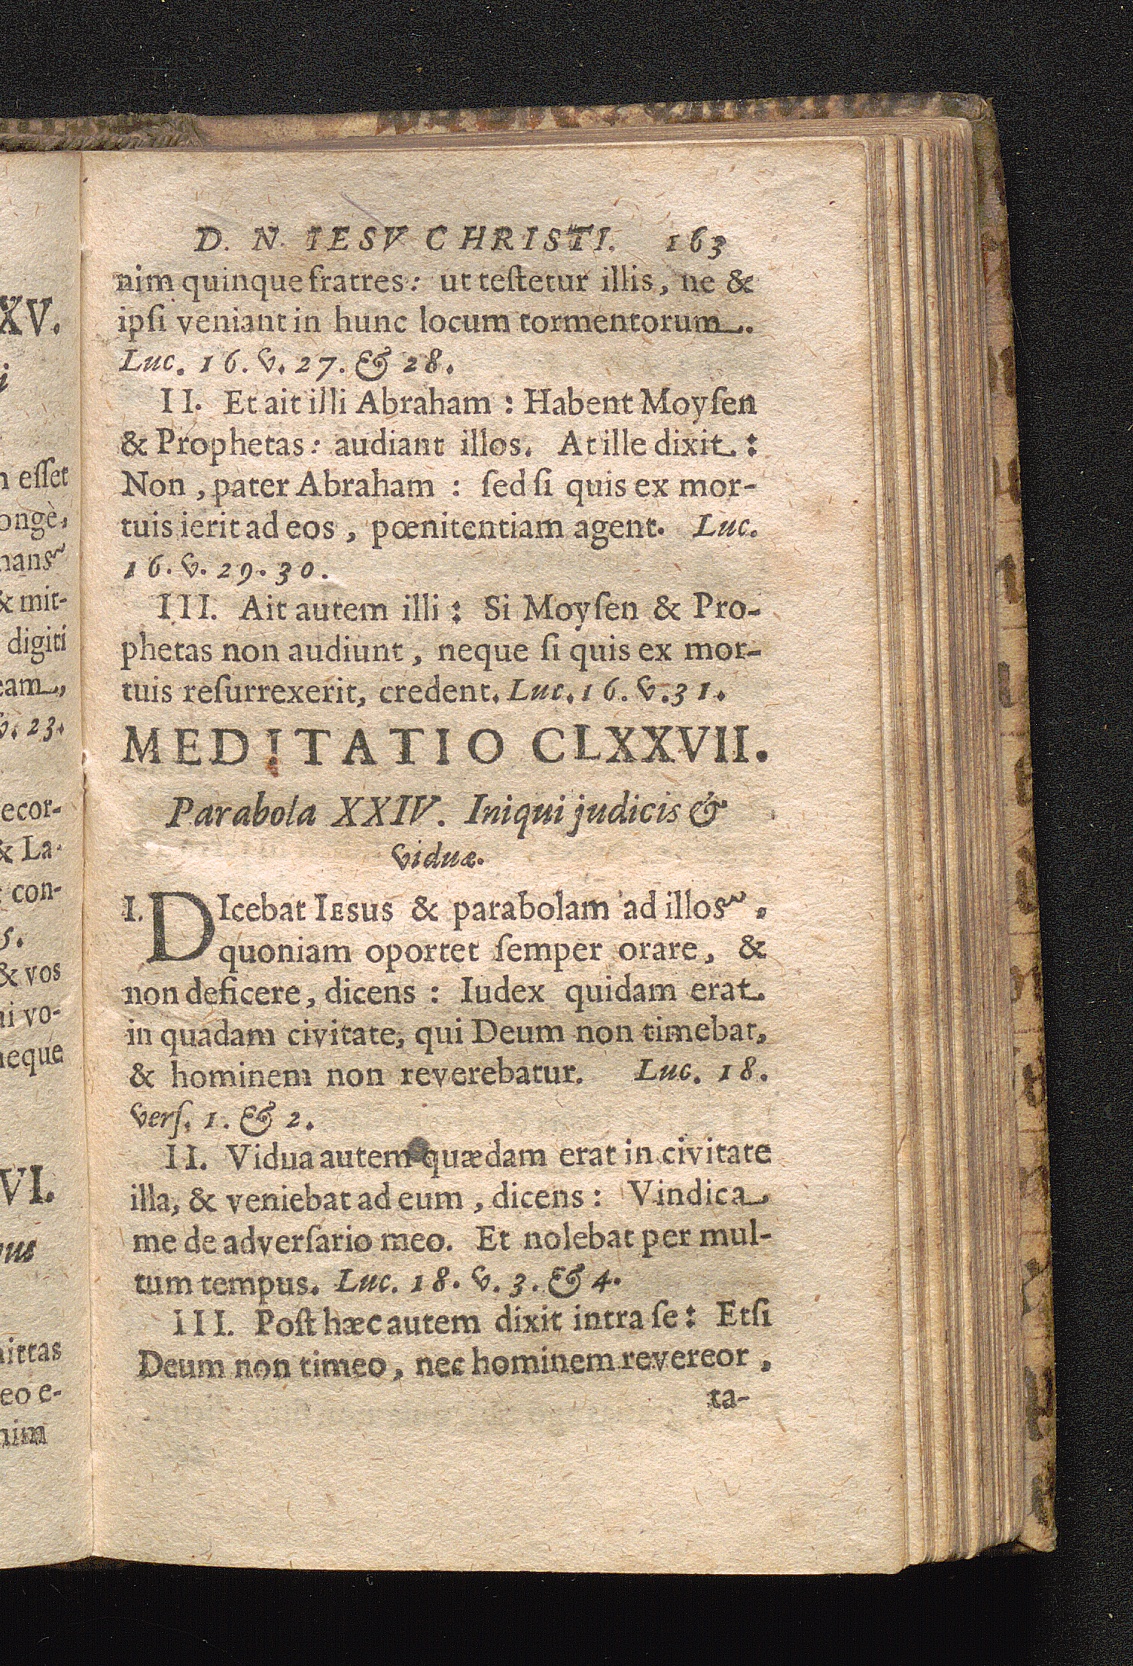 D. N. IESV CHRISTI. 163
nim quinque fratres: ut teſtetur illis, ne &
ipſi veniant in hunc locum tormentorum.
Luc. 16. v. 27. & 28.
II. Et ait illi Abraham: Habent Moyſen
& Prophetas: audiant illos. At ille dixit:
Non, pater Abraham: ſed ſi quis ex mor-
tuis ierit ad eos, pœnitentiam agent. Luc.
16. v. 29. 30.
III. Ait autem illi: Si Moyſen & Pro-
phetas non audiunt, neque ſi quis ex mor-
tuis reſurrexerit, credent. Luc. 16. v. 31.
MEDITATIO CLXXVII.
Parabola XXIV. Iniqui judicis &
viduæ.
I. DIcebat IESUS & parabolam ad illos,
quoniam oportet ſemper orare, &
non deficere, dicens: Iudex quidam erat
in quadam civitate, qui Deum non timebat,
& hominem non reverebatur. Luc. 18.
verſ. 1. & 2.
II. Vidua autem quædam erat in civitate
illa, & veniebat ad eum, dicens: Vindica
me de adverſario meo. Et nolebat per mul-
tum tempus. Luc. 18. v. 3. & 4.
III. Poſt hæc autem dixit intra ſe: Etſi
Deum non timeo, nec hominem revereor,
ta-
XV.
eſſet
ongè,
mans
& mit-
digiti
eam,
v. 23.
ecor-
& La-
con-
5.
& vos
ni vo-
neque
VI.
mittas
eo e-
nim